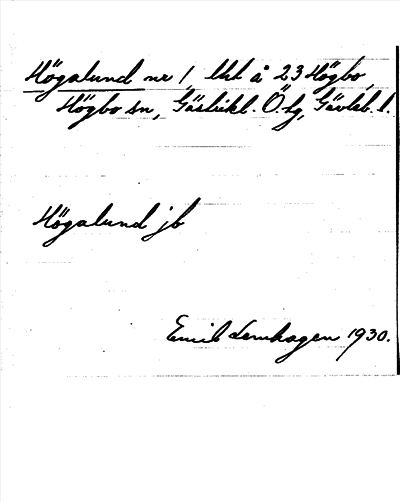 Högalund nr 1 lht å 23 Högbo,
Högbo sn, Gästrikl. Ö. hg, Gävleb. l.
Högalund jb
Emil Lernhagen 1930.